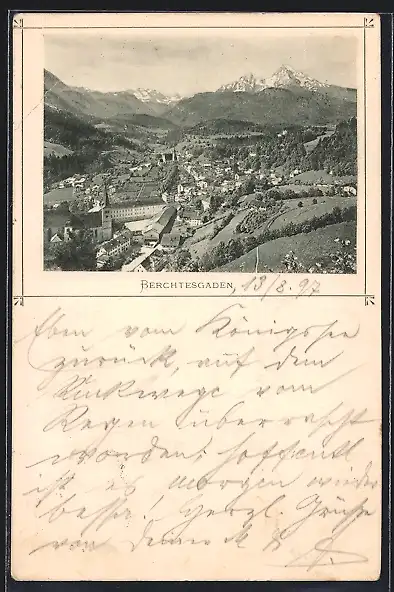 BERCHTESGADEN, 13/8.97
Eben vom Königssee
zurück, auf dem
Rückwege vom
Regen überrascht
worden; hoffentl
ist es morgen wieder
besser! Herzl. Grüße
von deinem